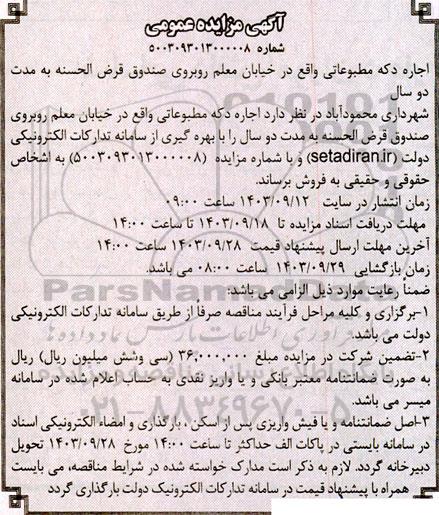 آگهی مزایده عمومی
شماره ۵۰۰۳۰۹۳۰۱۳۰۰۰۰۰۸
اجاره دکه مطبوعاتی واقع در خیابان معلم روبروی صندوق قرض الحسنه به مدت
دو سال
شهرداری محمودآباد در نظر دارد اجاره دکه مطبوعاتی واقع در خیابان معلم روبروی
صندوق قرض الحسنه به مدت دو سال را با بهره گیری از سامانه تدارکات الکترونیکی
دولت (setadiran.ir) و با شماره مزایده (۵۰۰۳۰۹۳۰۱۳۰۰۰۰۰۸) به اشخاص
حقوقی و حقیقی به فروش برساند.
زمان انتشار در سایت ۱۴۰۳/۰۹/۱۲ ساعت ۰۹:۰۰
مهلت دریافت اسناد مزایده تا ۱۴۰۳/۰۹/۱۸ تا ساعت ۱۴:۰۰
آخرین مهلت ارسال پیشنهاد قیمت ۱۴۰۳/۰۹/۲۸ ساعت ۱۴:۰۰
زمان بازگشایی ۱۴۰۳/۰۹/۲۹ ساعت ۰۸:۰۰ می باشد.
ضمناً رعایت موارد ذیل الزامی می باشد:
۱-برگزاری و کلیه مراحل فرآیند مناقصه صرفاً از طریق سامانه تدارکات الکترونیکی
دولت می باشد.
۲-تضمین شرکت در مزایده مبلغ ۳۶,۰۰۰,۰۰۰ (سی وشش میلیون ریال) ریال
به صورت ضمانتنامه معتبر بانکی و یا واریز نقدی به حساب اعلام شده در سامانه
میسر می باشد.
۳-اصل ضمانتنامه و یا فیش واریزی پس از اسکن ، بارگذاری و امضاء الکترونیکی اسناد
در سامانه بایستی در پاکات الف حداکثر تا ساعت ۱۴:۰۰ مورخ ۱۴۰۳/۰۹/۲۸ تحویل
دبیرخانه گردد. لازم به ذکر است مدارک خواسته شده در شرایط مناقصه، می بایست
همراه با پیشنهاد قیمت در سامانه تدارکات الکترونیک دولت بارگذاری گردد
ParsNamadData
۰۲۱-۸۸۳۴۹۶۷۰-۵